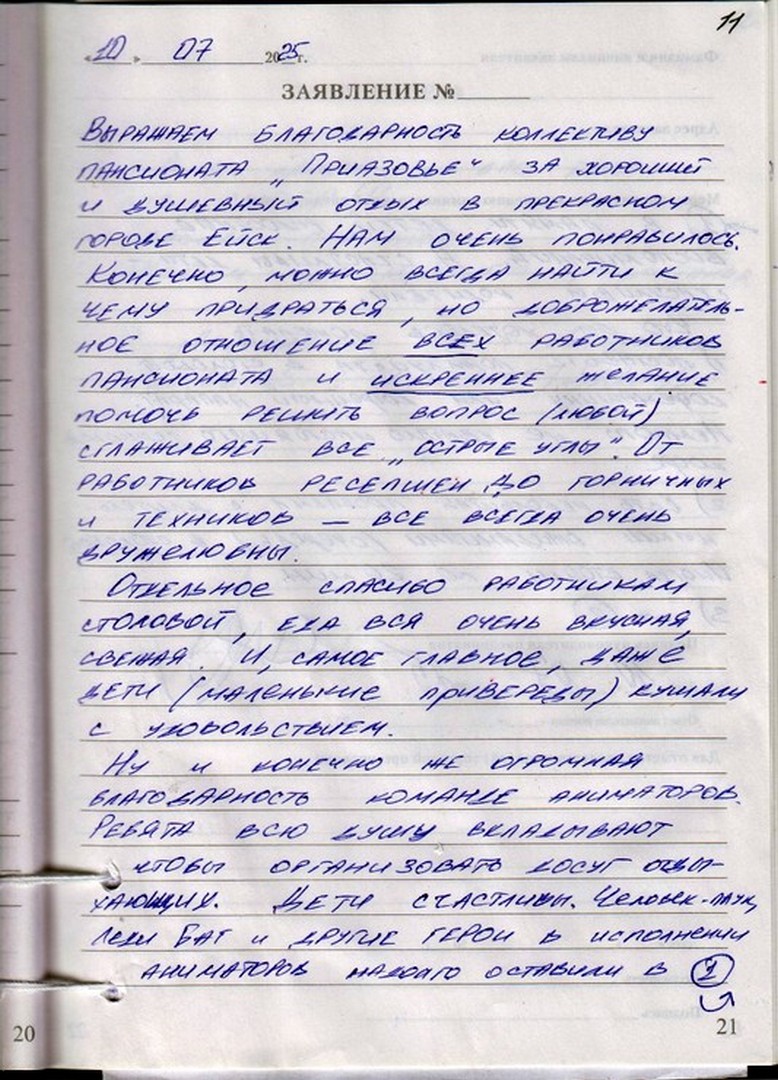 11
«10» 07 2025г.
ЗАЯВЛЕНИЕ №
Выражаем благодарность коллективу
пансионата „Приазовье" за хороший
и душевный отдых в прекрасном
городе Ейск. Нам очень понравилось.
Конечно, можно всегда найти к
чему придраться, но доброжелатель-
ное отношение всех работников
пансионата и искреннее желание
помочь решить вопрос (любой)
сглаживает все „острые углы". От
работников ресепшен до горничных
и техников — все всегда очень
дружелюбны.
Отдельное спасибо работникам
столовой, еда вся очень вкусная,
свежая. И, самое главное, даже
дети (маленькие привереды) кушали
с удовольствием.
Ну и конечно же огромная
благодарность команде аниматоров.
Ребята всю душу вкладывают
чтобы организовать досуг отды-
хающих. Дети счастливы. Человек-паук,
Леди Баг и другие герои в исполнении
аниматоров надолго оставили в 2
20
21